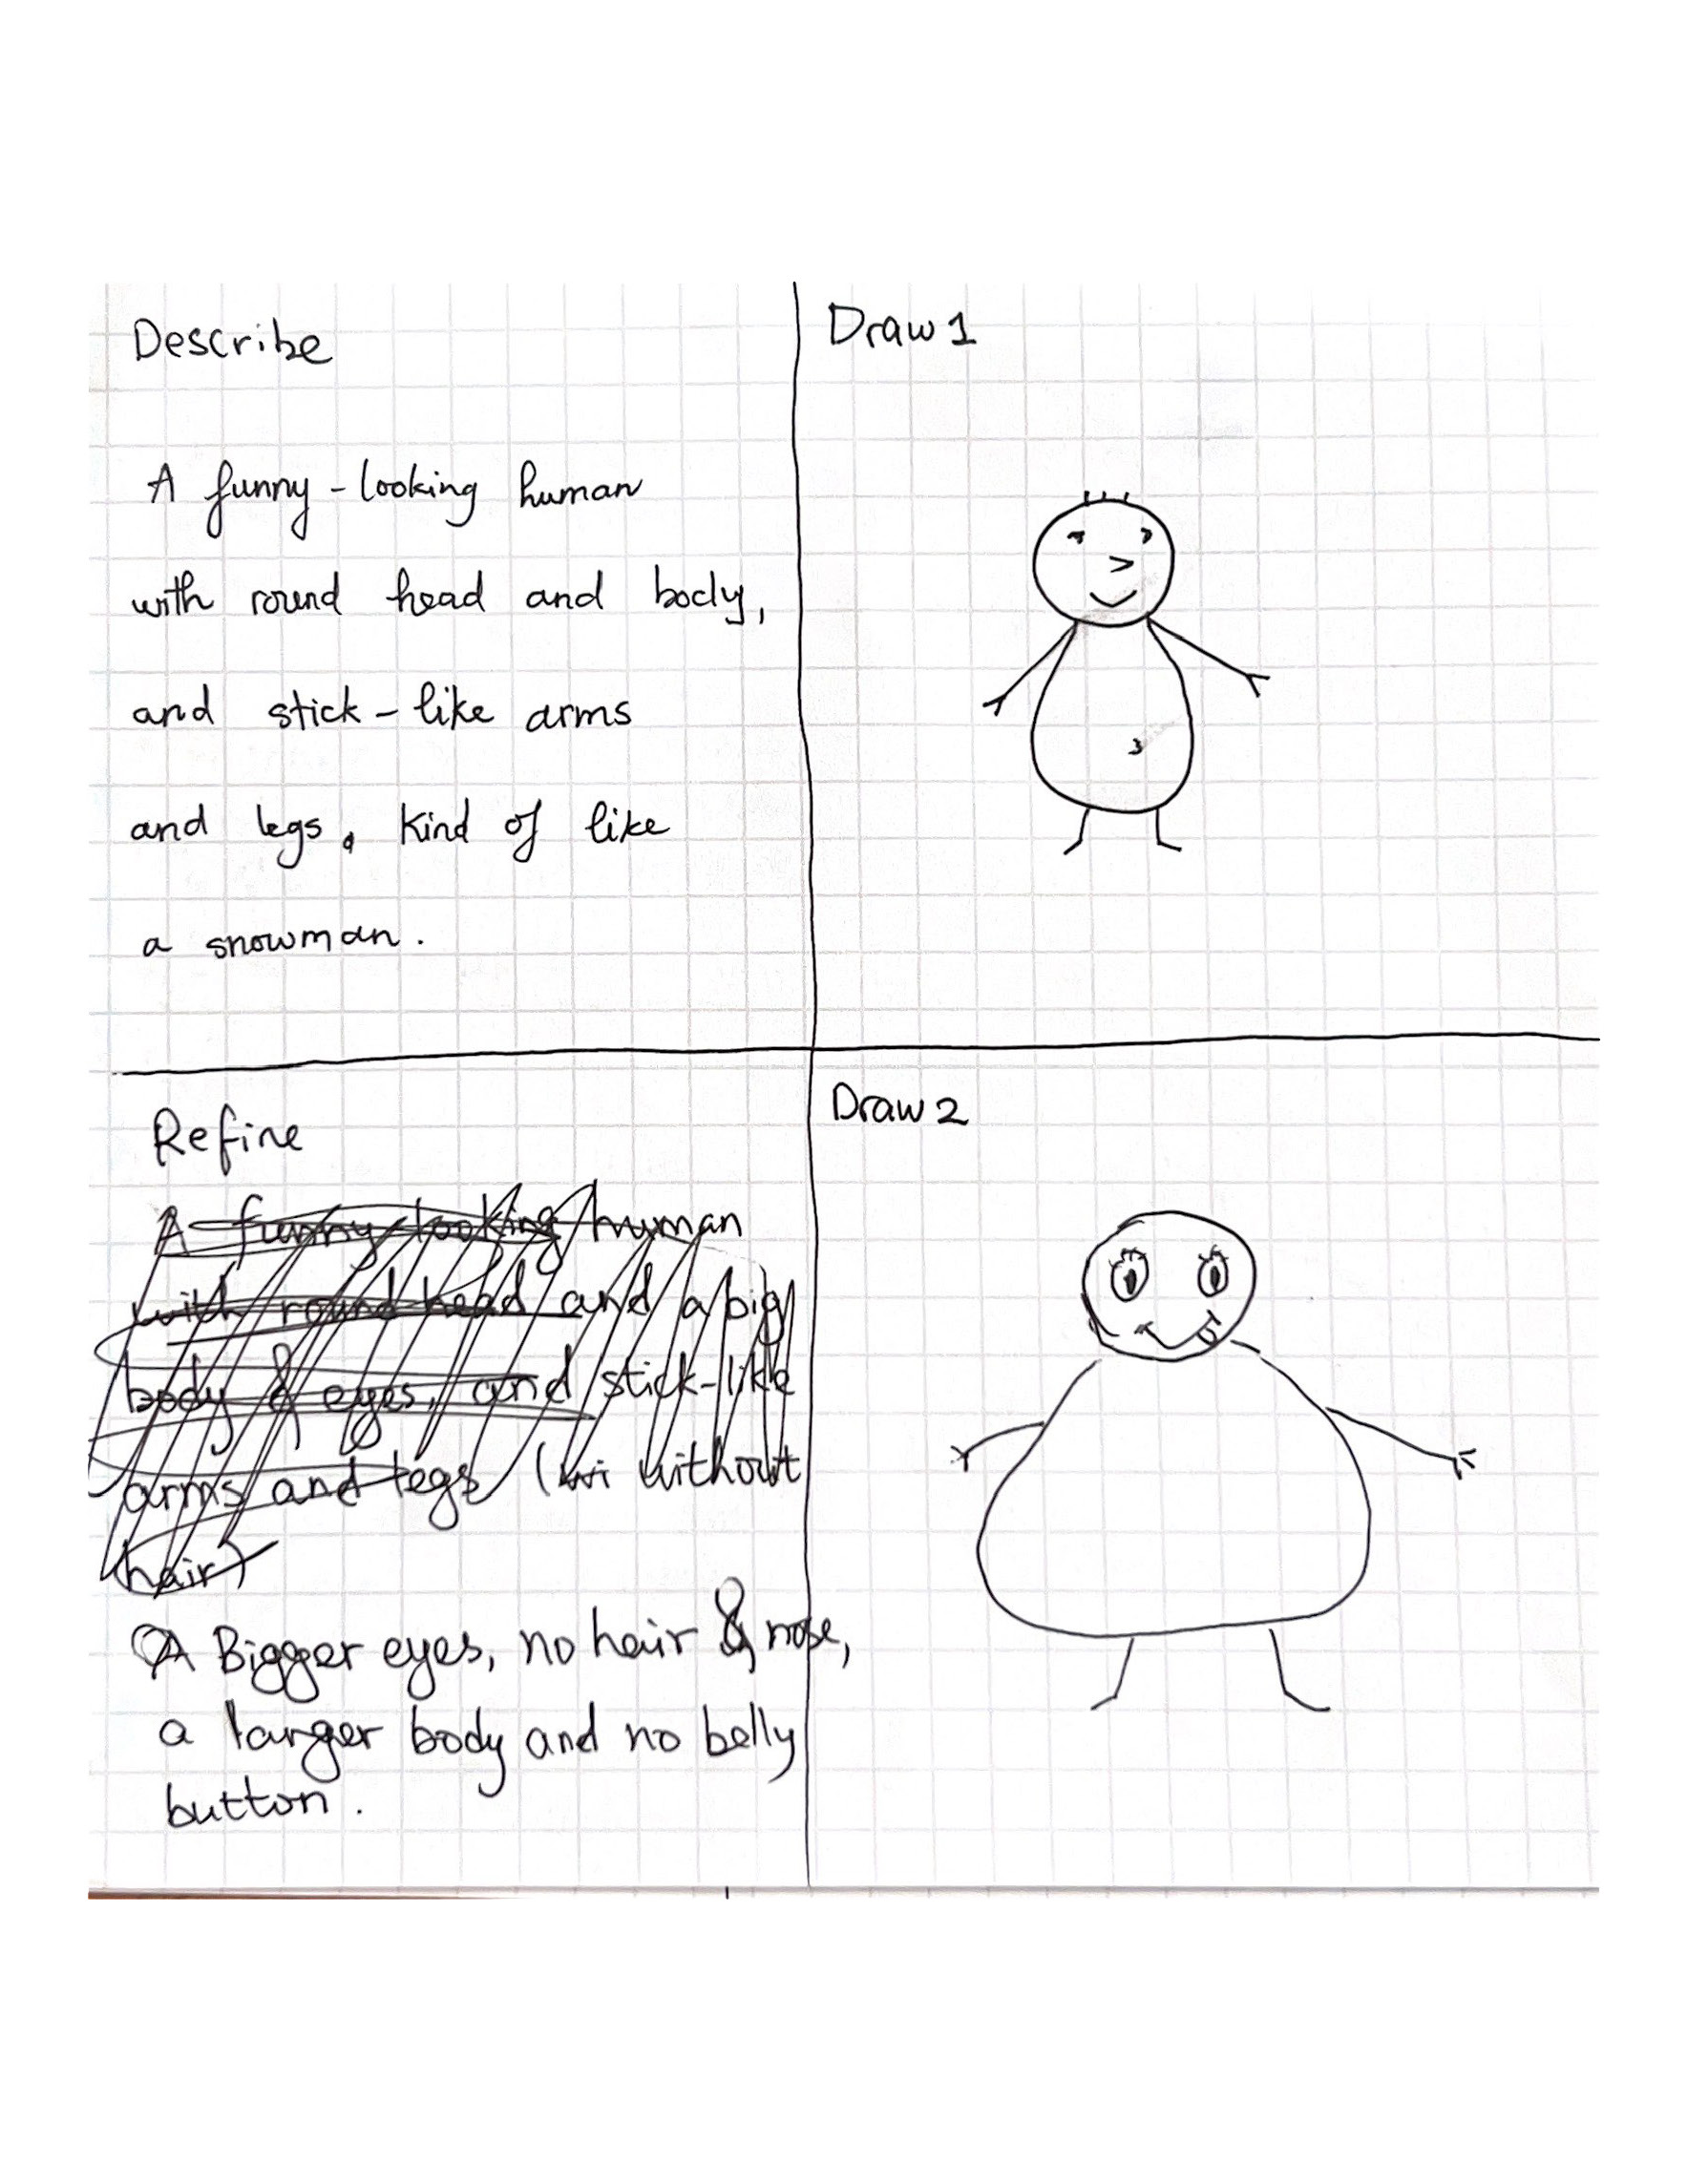 Describe
A funny-looking human
with round head and body,
and stick-like arms
and legs, kind of like
a snowman.
Draw 1
Refine
A funny-looking human
with round head and a big
body & eyes, and stick-like
arms and legs (wi without
hair)
A Bigger eyes, no hair & nose,
a larger body and no belly
button.
Draw 2